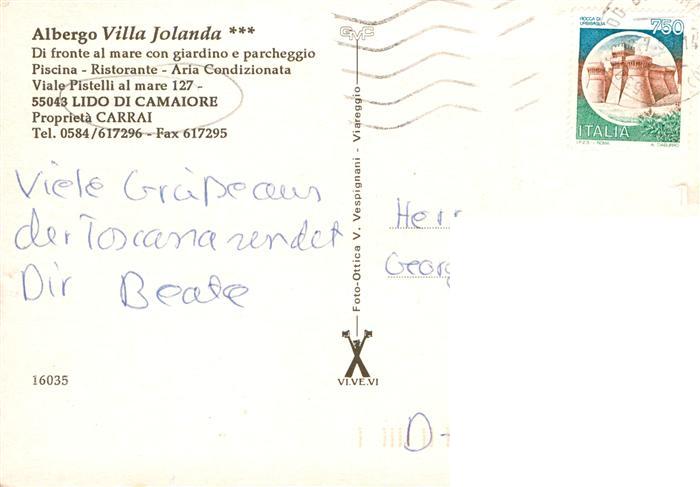 Albergo Villa Jolanda ***
Di fronte al mare con giardino e parcheggio
Piscina - Ristorante - Aria Condizionata
Viale Pistelli al mare 127 -
55043 LIDO DI CAMAIORE
Proprietà CARRAI
Tel. 0584/617296 - Fax 617295
Viele Grüße aus
der Toscana sendet
Dir Beate
16035
Foto-Ottica V. Vespignani - Viareggio
VI.VE.VI
ROCCA DI
URBISAGLIA
750
ITALIA
I.P.Z.S. - ROMA
Herr
Georg
D-